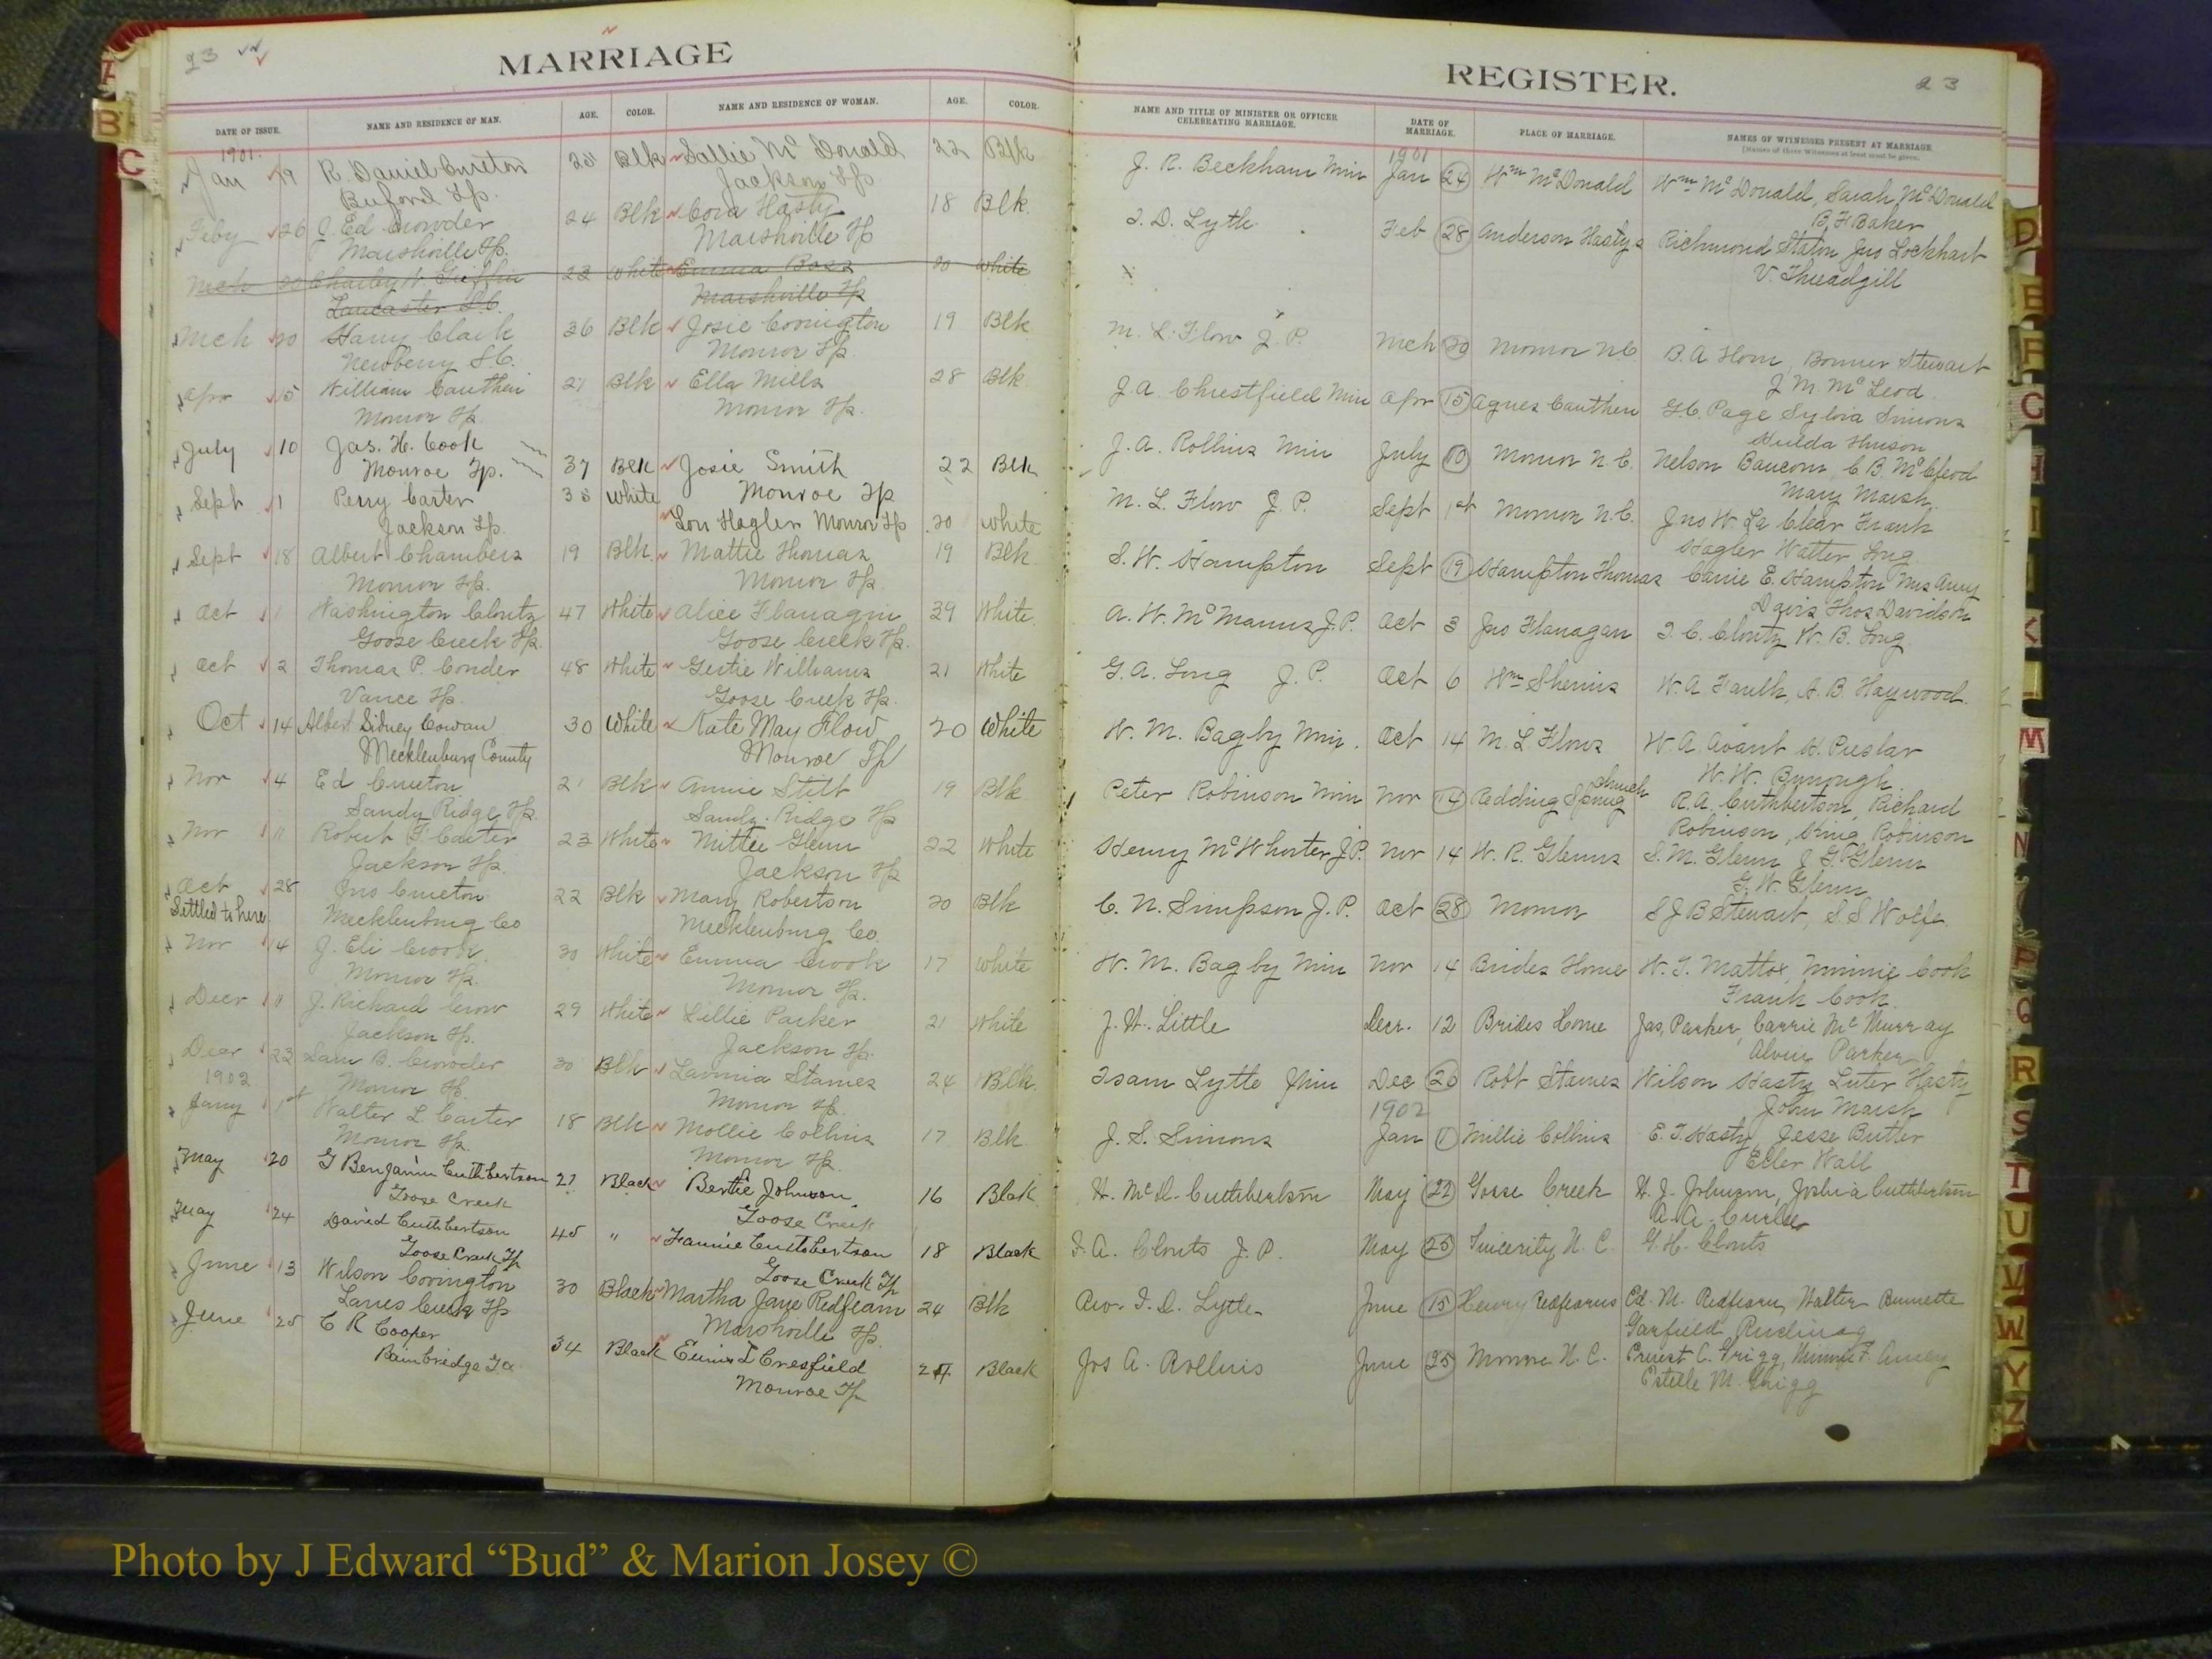 23
MARRIAGE
DATE OF ISSUE. NAME AND RESIDENCE OF MAN. AGE. COLOR. NAME AND RESIDENCE OF WOMAN. AGE. COLOR.
1901
Jan 19 R. Daniel Cureton 25 Blk Sallie McDonald 22 Blk
Buford Tp. Jackson Tp
Feby 26 J. Ed Crowder 24 Blk Cora Hasty 18 Blk.
Marshville Tp. Marshville Tp
Mch 20 Charley Griffin 23 White Emma Bass 20 White
Lancaster S.C. Marshville Tp
Mch 20 Harry Clark 36 Blk Josie Covington 19 Blk
Newberry S.C. Monroe Tp.
Apr 15 William Cauthen 21 Blk Ella Mills 28 Blk
Monroe Tp. Monroe Tp.
July 10 Jas. H. Cook
Monroe Tp. 37 Blk Josie Smith 22 Blk
Sept 1 Perry Carter 35 White Monroe Tp
Jackson Tp. Lou Hagler Monroe Tp 20 White
Sept 18 Albert Chambers 19 Blk. Mattie Thomas 19 Blk
Monroe Tp. Monroe Tp.
Oct 1 Washington Clontz 47 White Alice Flanagin 39 White
Goose Creek Tp. Goose Creek Tp.
Oct 2 Thomas P. Conder 48 White Gertie Williams 21 White
Vance Tp. Goose Creek Tp.
Oct 14 Albert Sidney Cowan 30 White Kate May Flow 20 White
Mecklenburg County Monroe Tp
Nov 4 Ed Cureton 21 Blk Annie Stitt 19 Blk
Sandy Ridge Tp. Sandy Ridge Tp
Nov 11 Robert F. Carter 23 White Mittie Glenn 22 White
Jackson Tp. Jackson Tp
Oct 28 Jno Cureton 22 Blk Mary Robertson 20 Blk
Settled to here Mecklenburg Co Mecklenburg Co.
Nov 14 J. Eli Crook 30 White Emma Crook 17 White
Monroe Tp. Monroe Tp.
Decr 11 J. Richard Crow 29 White Lillie Parker 21 White
Jackson Tp. Jackson Tp.
Decr 23 Sam B. Crowder 30 Blk Lavinia Starnes 24 Blk.
1902 Monroe Tp. Monroe Tp.
Jany 1st Walter L. Carter 18 Blk Mollie Collins 17 Blk
Monroe Tp. Monroe Tp.
May 20 G Benjamin Cuthbertson 21 Black Bertie Johnson 16 Black
Goose Creek Goose Creek
May 24 David Cuthbertson 45 " Fannie Cuthbertson 18 Black
Goose Creek Tp Goose Creek Tp
June 13 Wilson Covington 30 Black Martha Jane Redfearn 24 Blk
Lanes Creek Tp Marshville Tp.
June 25 C R Cooper 34 Black Eunis L Cresfield 24 Black
Bainbridge Ga. Monroe Tp
REGISTER.
23
NAME AND TITLE OF MINISTER OR OFFICER CELEBRATING MARRIAGE. DATE OF MARRIAGE. PLACE OF MARRIAGE. NAMES OF WITNESSES PRESENT AT MARRIAGE
[Names of three Witnesses at least must be given.
1901
J. R. Beckham Min Jan 24 Wm McDonald Wm McDonald, Sarah McDonald
B. F. Baker
I. D. Lytle Feb 28 Anderson Hastys Richmond Staton Jno Lockhart
V. Threadgill
M. L. Flow J. P. Mch 20 Monroe N C B. A. Horn, Bonner Stewart
J. M. McLeod
J. A. Chrestfield Min Apr 15 Agnes Cauthen G. C. Page Sylvia Simons
Hulda Hinson
J. A. Rollins Min July 10 Monroe N. C. Nelson Baucom, C. B. McCleod
Mary Marsh
M. L. Flow J. P. Sept 1st Monroe N. C. Jno W. La Clear Frank
Hagler Walter Long
S. W. Hampton Sept 19 Hampton Thomas Carrie E. Hampton Mrs Amy
Davis Thos Davidson
A. W. McManus J. P. Oct 3 Jno Flanagan I. C. Clontz W. B. Long
G. A. Long J. P. Oct 6 W. A. Faulk, A. B. Haywood
W. M. Bagby Min. Oct 14 M. L. Flows W. A. Avant
Peter Robinson Min Nov 14 Redding Spring church R. A. Cuthbertson, Richard
Robinson, King Robinson
Henry McWhorter J.P. Nov 14 W. R. Glenns S. M. Glenn J. G. Glenn
G. W. Glenn
C. N. Simpson J. P. Oct 28 Monroe S J B Stewart, S. S Wolfe
W. M. Bagby Min Nov 14 Brides Home W. J. Mattox, Minnie Cook
Frank Cook.
J. W. Little Decr. 12 Brides Home Jas, Parker, Carrie McMurray
Alvin Parker
Isam Lytle Min Dec 26 Robt Starnes Wilson Hasty Luter Hasty
John Marsh
1902
J. S. Simons Jan 1 Millie Collins E. T. Hasty, Jesse Butler
Eller Wall
W. McD. Cuthbertson May 22 Goose Creek W. J. Johnson, Joshua Cuthbertson
A. A.
I. A. Clonts J. P. May 25 Sincerity N. C. G. H. Clonts
Rev. I. D. Lytle June 15 Henry Redfearns Ed. M. Redfearn, Walter Burnette
Garfield
Jos A. Rollins June 25 Monroe N. C. Ernest C. Grigg,
Estelle M. Grigg
A
B
C
D
E
F
G
H
I
K
M
N
P
Q
R
S
T
U
V
W
Y
Z
Photo by J Edward “Bud” & Marion Josey ©